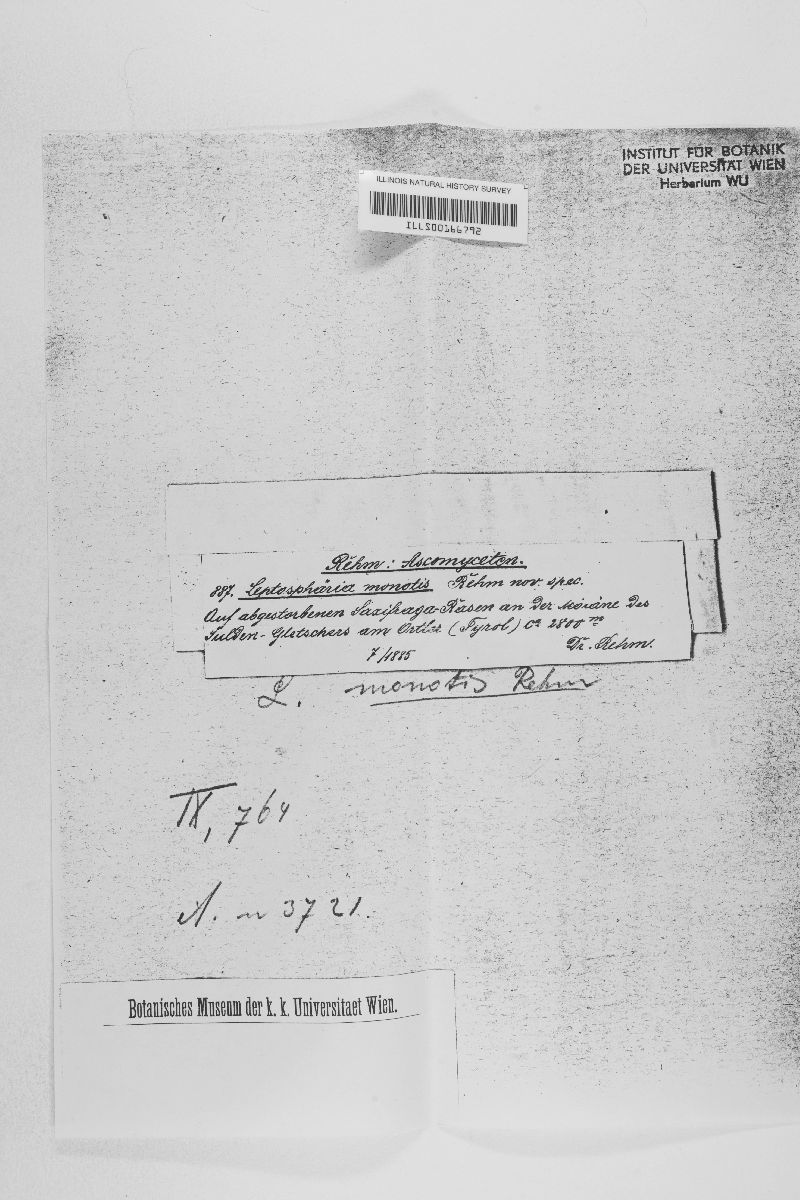 INSTITUT FÜR BOTANIK
DER UNIVERSITÄT WIEN
Herbarium WU
ILLINOIS NATURAL HISTORY SURVEY
ILLS00166792
Rehm: Ascomyceten.
887. Leptosphäria monotis Rehm nov. spec.
Auf abgestorbenen Saxifraga-Rasen an der Moräne des
Sulden-Gletschers am Ortler (Tyrol) ca 2800 m
7/1885 Dr. Rehm.
L. monotis Rehm
IX, 764
A. n 3721.
Botanisches Museum der k. k. Universitaet Wien.